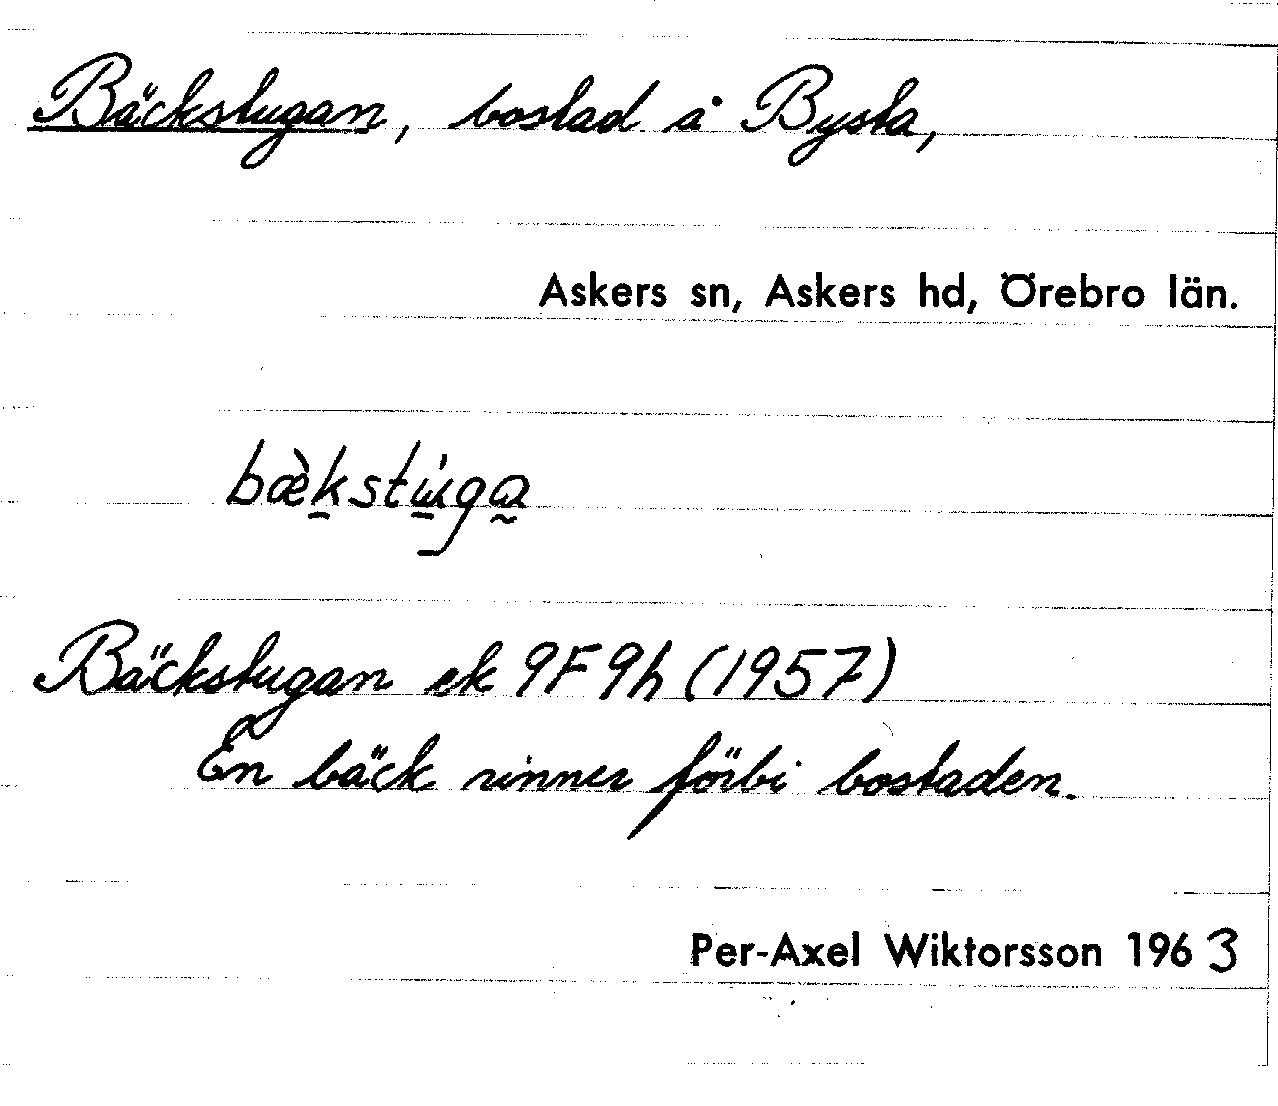 Bäckstugan, bostad å Bysta,
Askers sn, Askers hd, Örebro län.
bæ̀k̠stu̠̇ga̰
Bäckstugan ek 9F9h (1957)
En bäck rinner förbi bostaden.
Per-Axel Wiktorsson 1963